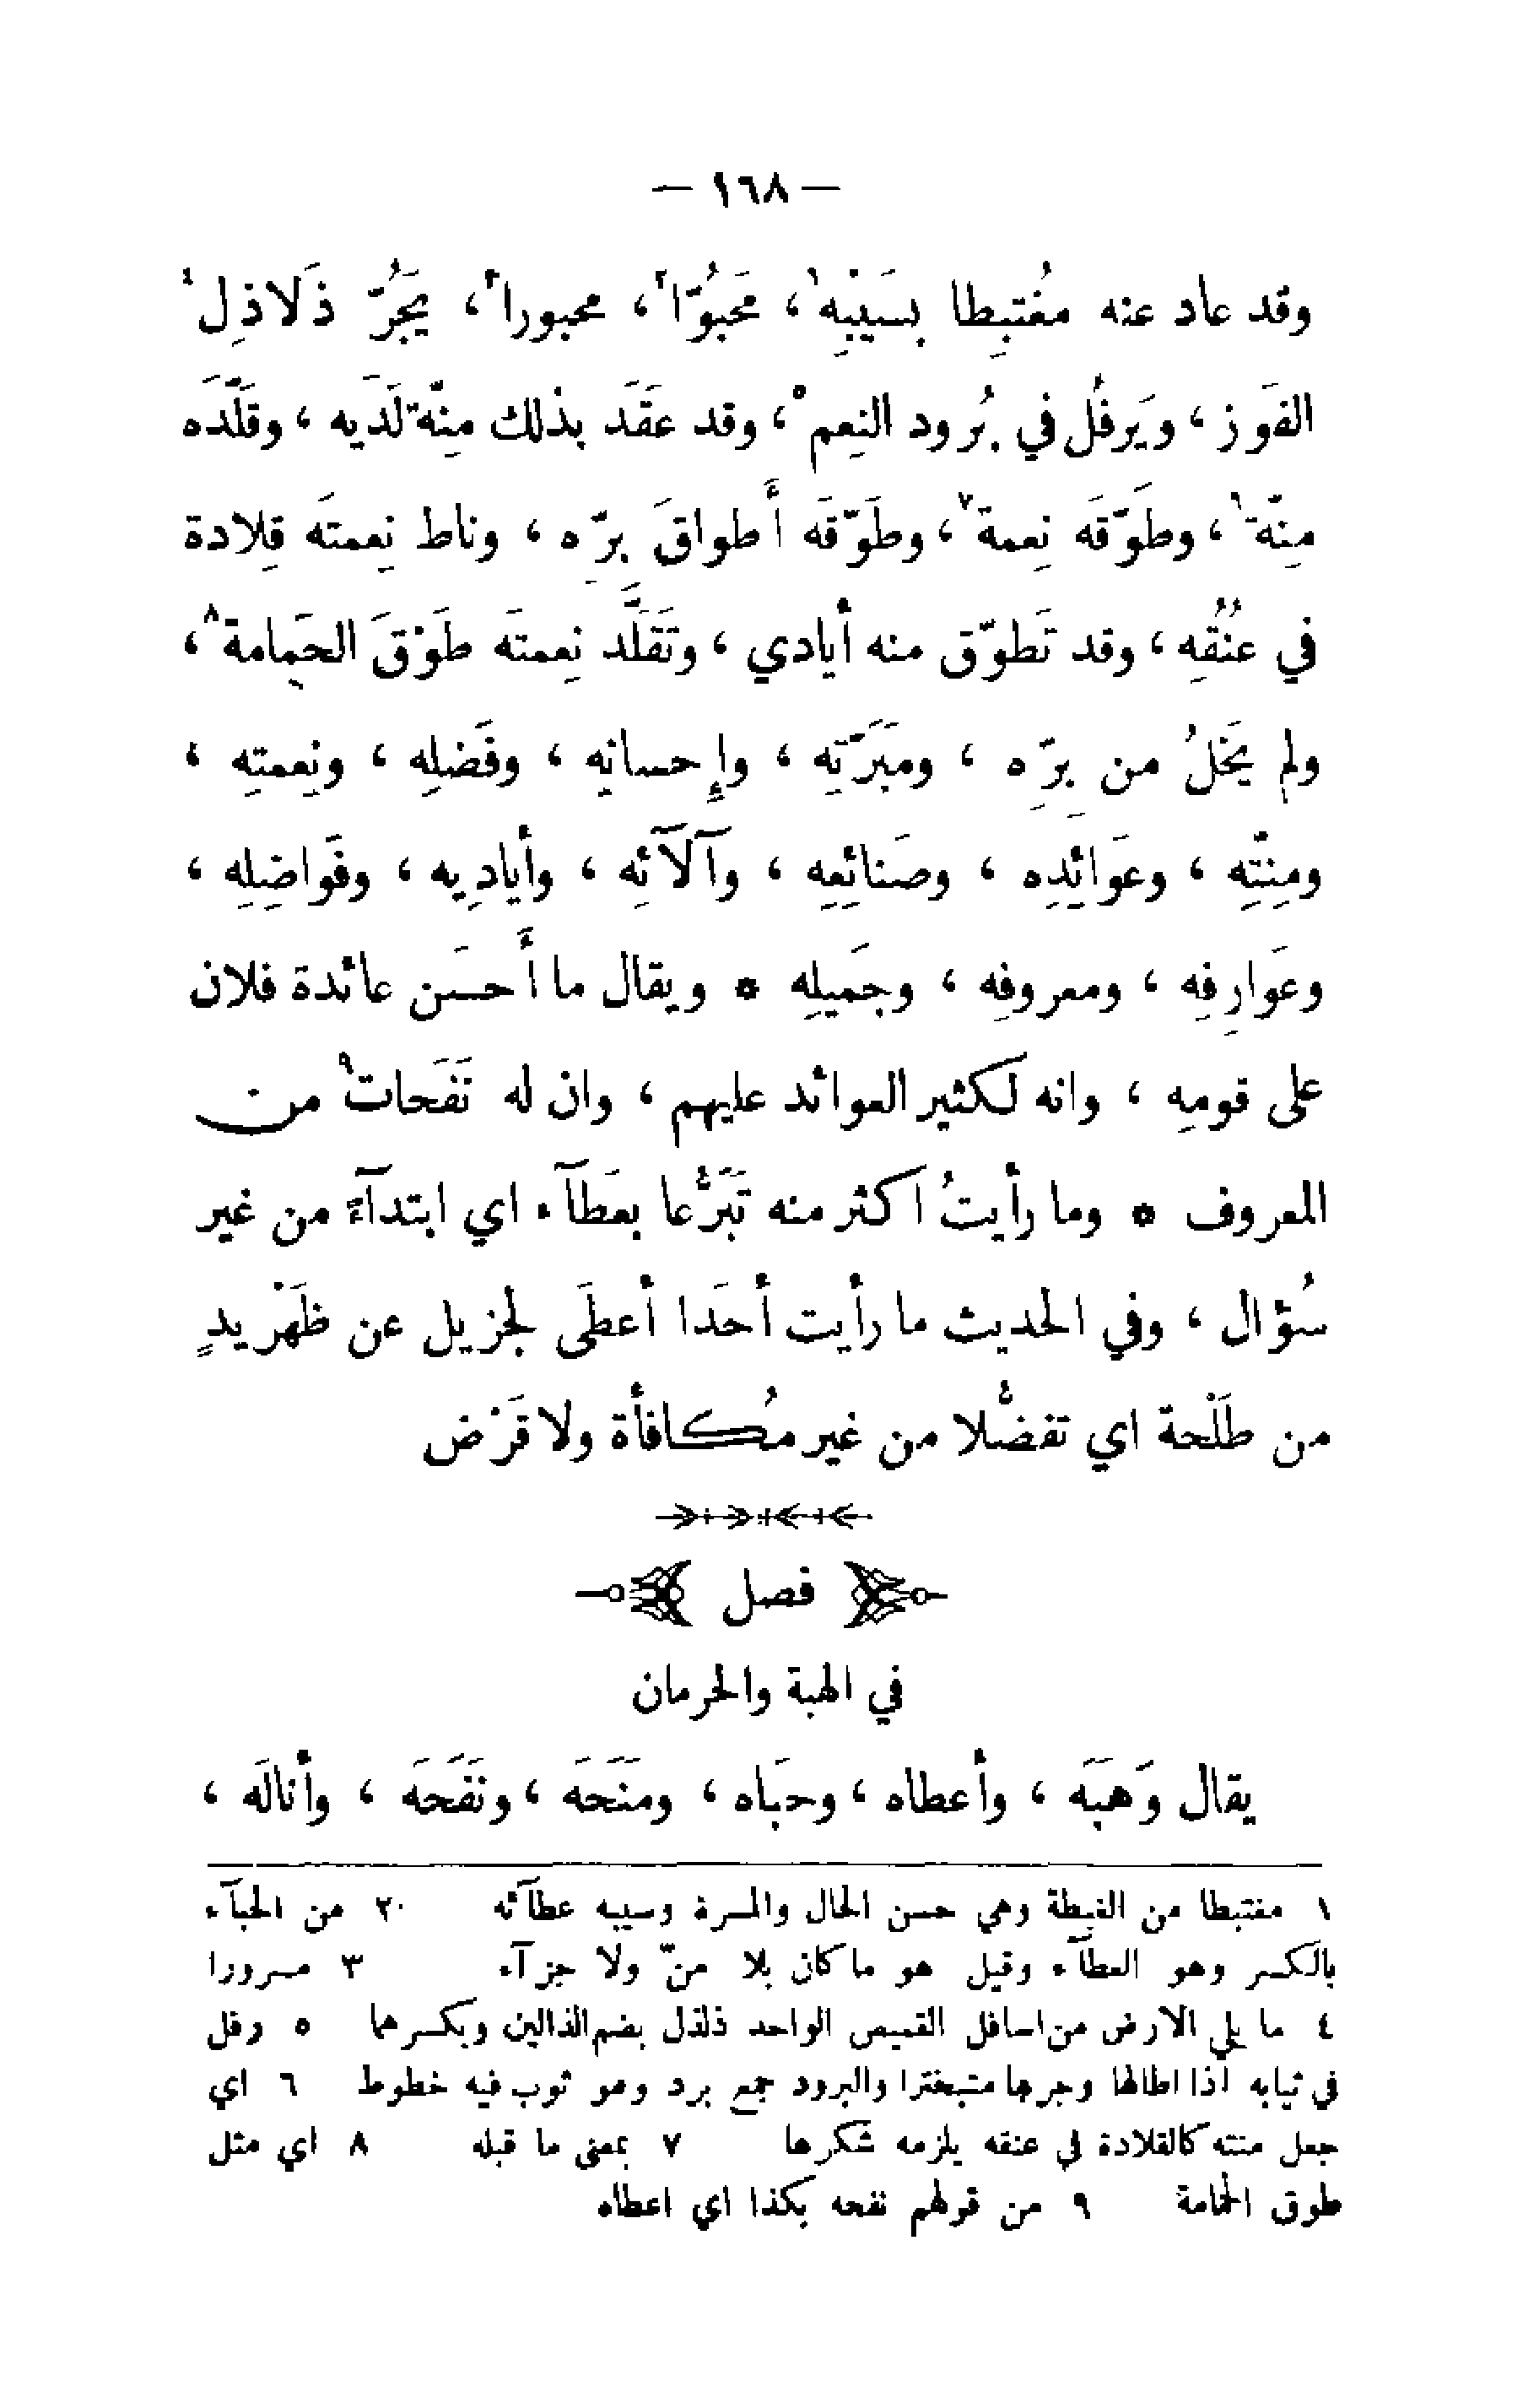 — ١٦٨ —
وقد عاد عنه مغُتبِطا بسَيْبِه١ ، مَحبُوّا٢ ، محبورا٣ ، يَجُرّ ذَلاذِل٤
الفَوز ، ويَرفُل في بُرود النِعم٥ ، وقد عقَدَ بذلك مِنّة لَدَيه ، وقلَّدَه
مِنّة٦ ، وطوَّقَه نِعمة٧ ، وطَوَّقَه أَطواقَ بِرّه ، وناط نِعمتَه قِلادة
في عنُقُِه ، وقد تَطوَّق منه أيادي ، وتَقَلَّد نِعمتَه طَوْقَ الحَمِامة٨ ،
ولم يَخلُ من بِرّهِ ، ومبَرَّتِه ، وإِحسانِه ، وفَضلِه ، ونِعمتِه ،
ومِنّتِه ، وعوَائِدِه ، وصَنائِعِه ، وآلآئِه ، وأيادِيه ، وفَواضِلِه ،
وعَوارِفِه ، ومعروفِه ، وجَميلِه * ويقال ما أَحسَن عائدة فلان
على قومِه ، وانه لكثير العوائد عليهم ، وان له نَفَحات٩ من
المعروف * وما رأيتُ اكثر منه تَبَرُّعا بعَطآء اي ابتدآءً من غير
سُؤال ، وفي الحديث ما رأيت أحَدا أعطَى لجزيل عن ظَهْر يدٍ
من طَلْحة اي تفضُّلا من غير مُكافأة ولا قَرْض
فصل
في الهبة والحرمان
يقال وَهبَه ، وأعطاه ، وحبَاه ، ومنَحَه ، ونَفَحَه ، وأنالَه ،
١ مغتبطا من الغبطة وهي حسن الحال والمسرة وسيبه عطآئه ٢٠ من الحبآء
بالكسر وهو العطآء وقيل هو ما كان بلا منّ ولا جزآء ٣ مسرورا
٤ ما يلي الارض من اسافل القميص الواحد ذلذل بضم الذالين وبكسرهما ٥ رفل
في ثيابه اذا اطالها وجرها متبخترا والبرود جمع برد وهو ثوب فيه خطوط ٦ اي
جعل منته كالقلادة في عنقه يلزمه شكرها ٧ بمعنى ما قبله ٨ اي مثل
طوق الحمامة ٩ من قولهم نفحه بكذا اي اعطاه